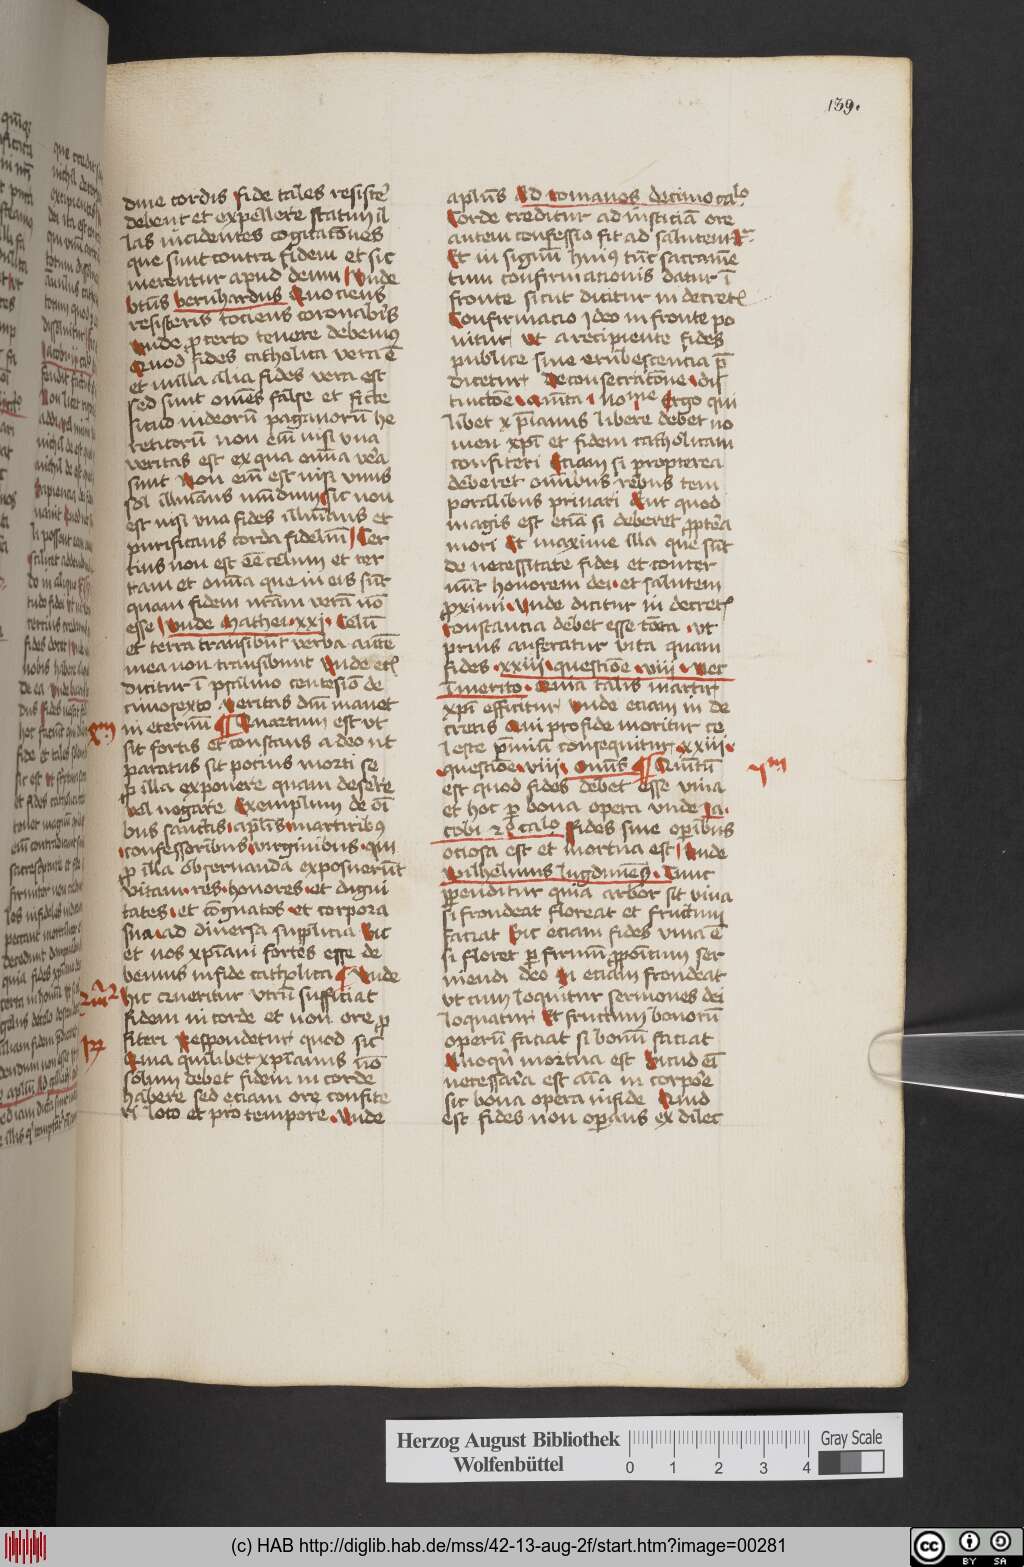 139.
dine cordis fide tales resiste᷑
debent et expellere statim il
las incidentes cogitac̄ones
que sunt contra fidem et sic
merentur apud deum Unde
btūs bernhardus Quociens
resisteris tociens coronab̄is
Unde ꝓ certo tenere debem9
Quod fides catholica vera ē
et nulla alia fides vera est
sed sunt om̄es false et ficte
sicud iudeorū paganorū he
reticorū non em̄ nisi vna
veritas est ex qua om̄ia ve᷑a
sunt Non em̄ est nisi vnus
sol illuīans mūdum sic non
est nisi vna fides illuīans et
purificans corda fideliū Ter
cius non est eē celum et ter
ram et om̄ia que in eis sūt
quam fidem nr̄am verā nō
esse Unde Mathei xxj Celū
et terra transibūt verba autē
mea non transibunt Unde ecl
dicitur ī psalmo centesīo de
cimosexto Veritas dm̄i manet
in eternū ¶ Quartum est vt
sit fortis et constans a deo ut
paratus sit pocius morti se
ꝓ illa exponere quam dese᷑re
vel negare Exemplum de oī
bus sanctis apl̄is martirib9
confessoribus virginibus qui
ꝓ illa obseruanda exposuerūt
vitam res honores et digni
tates et cōgnatos et corpora
sua ad diuersa supplicia Sic
et nos xp̄iani fortes esse de
bemus in fide catholica ¶ Unde
hic queritur vtrū sufficiat
fidem in corde et non ore ꝓ
fiteri Respondetur quod sic
Quia quilibet xp̄ianus nō
solum debet fidem in corde
habere sed eciam ore confite
ri loco et pro tempore Unde
xm
2m 2
Rx
apl̄us Ad romanos decimo ca.lo
Corde creditur ad iusticiā ore
autem confessio fit ad salutem
Et in signū huius tūc sacramē
tum confirmacionis datur ī
fronte sicut dicitur in decretl
Confirmacio Ideo in fronte po
nitur vt a recipiente fides
publice sine erubescencia p̄
dicetur De consecracōne dis
tinctōe quīta no me Ergo qui
libet xp̄ianus libere debet no
men xp̄i et fidem catholicam
confiteri Eciam si propterea
deberet om̄ibus rebus tem
poralibus priuari Aut quod
magis est eciā si deberet ꝓpt᷑ea
mori Et maxime illa que sūt
de necessitate fidei et conter
nūt honorem dei et salutem
ꝓximi Unde dicitur in decretl
Constancia debet esse tāta vt
prius auferatur vita quam
fides xxiiij questiōe viij Nec
īmerito Quia talis martir
xp̄i efficitur Unde eciam in de
cretis Qui pro fide moritur ce
leste p̄miū consequitur xxiij
questiōe viij Om̄ĩs ¶ Quītū
est quod fides debet esse viua
et hoc ꝑ bona opera Unde Ja
cobi 2 calo Fides sine oꝑibus
ociosa est et mortua est Unde
Wilhelmus lugdunēs Tunc
ꝑpenditur quia arbor sit viua
si frondeat floreat et fructum
faciat Sic eciam fides viua ē
si floret ꝑ firmū ꝓpositum ser
uiendi deo Si eciam frondeat
vt cum loquitur sermones dei
loquatur Et fructum bonorū
operū faciat si bonū faciat
Alioqn̄ mortua est Sicud em̄
necessaria est aīa in corpore
sic bona opera in fide Quid
est fides non oꝑans ex dilec
5m
Herzog August Bibliothek
Wolfenbüttel
0 1 2 3 4
Gray Scale
(c) HAB http://diglib.hab.de/mss/42-13-aug-2f/start.htm?image=00281
cc BY SA